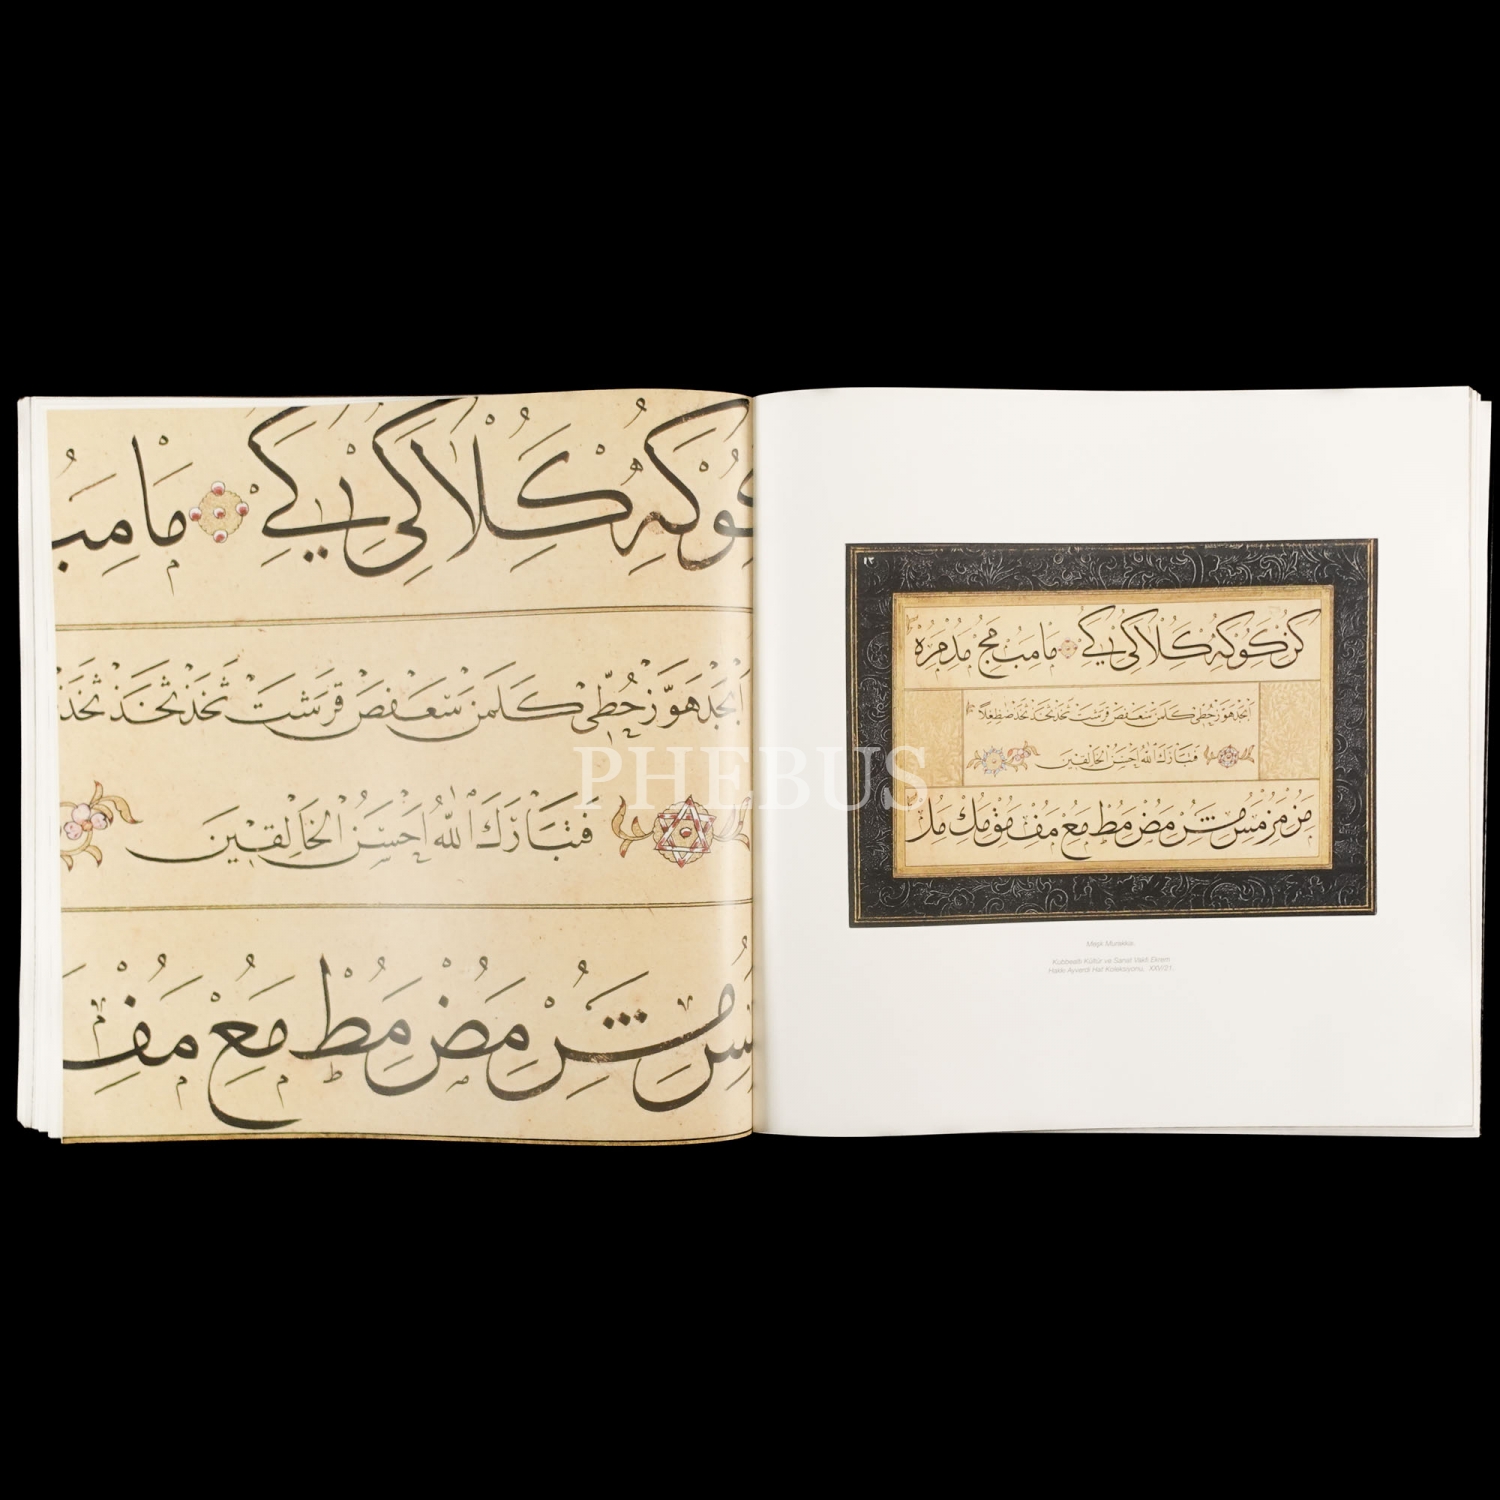 كو كه كلا كي يكے ما مب
ابجد هوز حطي كلمن سعفص قرشت ثخذ ثخذ ثخذ
فتبارك الله احسن الخالقين
مس مش مض مط مع مف
PHEBUS
١٣
كن كو كه كلا كي يكے ما مب مج مد مر مه
ابجد هوز حطي كلمن سعفص قرشت ثخذ ثخذ ثخذ ضظغلا
فتبارك الله احسن الخالقين
من مز مس مش مض مط مع مف مق مك مل
Meşk Murakkaı.
Kubbealtı Kültür ve Sanat Vakfı Ekrem
Hakkı Ayverdi Hat Koleksiyonu, XXI/21.